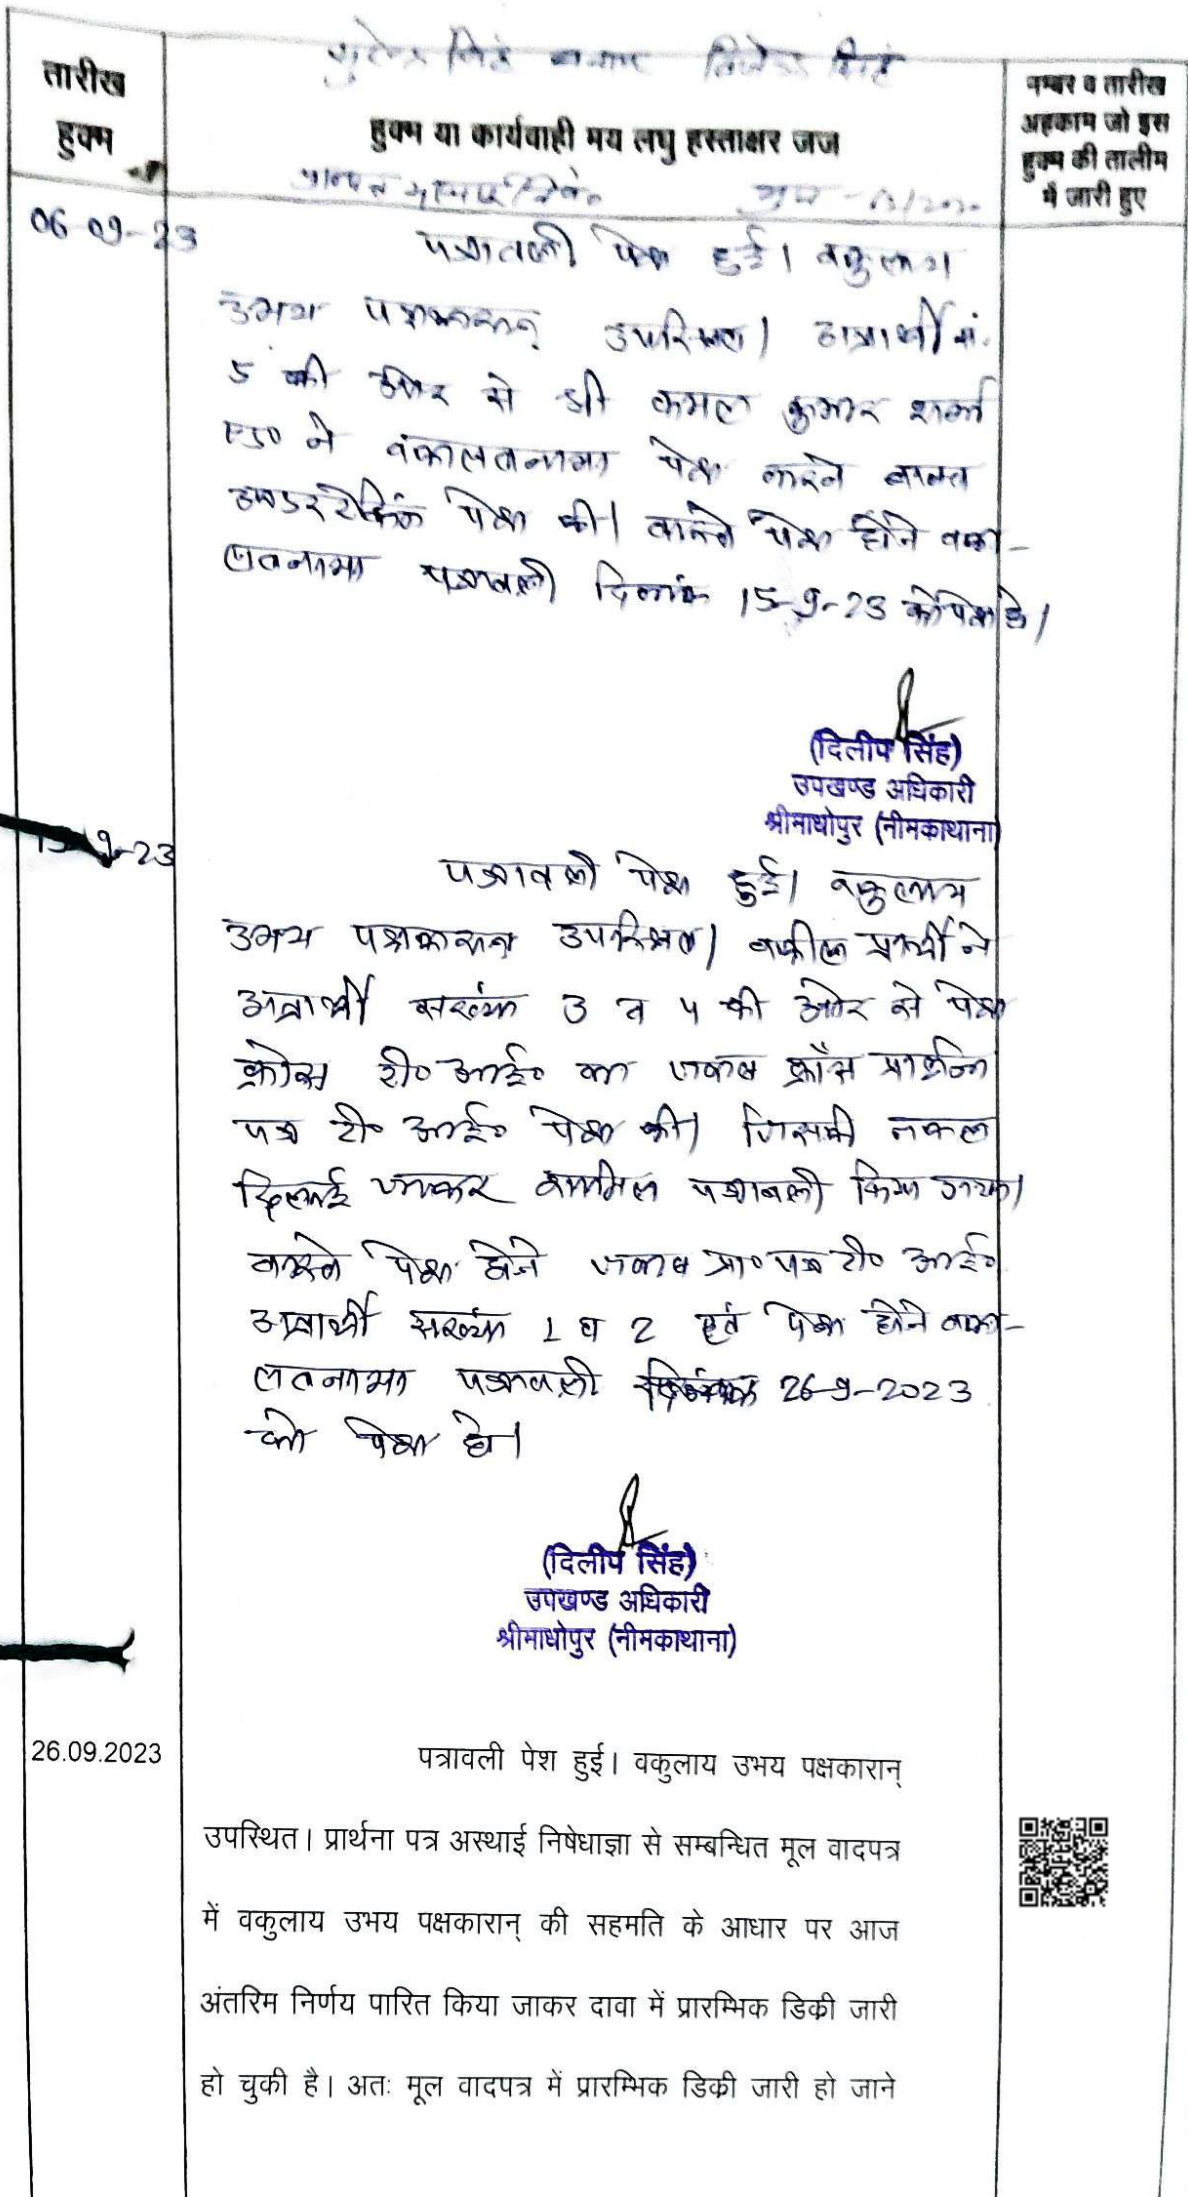 तारीख
हुक्म
सिंह बनाम सिंह
हुक्म या कार्यवाही मय लघु हस्ताक्षर जज
नम्बर व तारीख
अहकाम जो इस
हुक्म की तालीम
में जारी हुए
06-09-23
पत्रावली पेश हुई। वकुलाय
उभय पक्षकारान् उपस्थित। अप्रार्थी सं.
5 की ओर से श्री कमल कुमार शर्मा
एड० ने वकालतनामा पेश करने बाबत
अण्डरटेकिंग पेश की। वास्ते पेश होने वका-
लतनामा पत्रावली दिनांक 15-9-23 को पेश हो।
(दिलीप सिंह)
उपखण्ड अधिकारी
श्रीमाधोपुर (नीमकाथाना)
15-9-23
पत्रावली पेश हुई। वकुलाय
उभय पक्षकारान उपस्थित। वकील प्रार्थी ने
अप्रार्थी संख्या 3 व 4 की ओर से पेश
क्रोस टी० आई० का जवाब क्रॉस प्रार्थना
पत्र टी० आई० पेश की। जिसकी नकल
दिलाई जाकर शामिल पत्रावली किया गया।
वास्ते पेश होने जवाब प्रा० पत्र टी० आई०
अप्रार्थी संख्या 1 व 2 एवं पेश होने वका-
लतनामा पत्रावली दिनांक 26-9-2023
को पेश हो।
(दिलीप सिंह)
उपखण्ड अधिकारी
श्रीमाधोपुर (नीमकाथाना)
26.09.2023
पत्रावली पेश हुई। वकुलाय उभय पक्षकारान्
उपस्थित। प्रार्थना पत्र अस्थाई निषेधाज्ञा से सम्बन्धित मूल वादपत्र
में वकुलाय उभय पक्षकारान् की सहमति के आधार पर आज
अंतरिम निर्णय पारित किया जाकर दावा में प्रारम्भिक डिक्री जारी
हो चुकी है। अतः मूल वादपत्र में प्रारम्भिक डिक्री जारी हो जाने